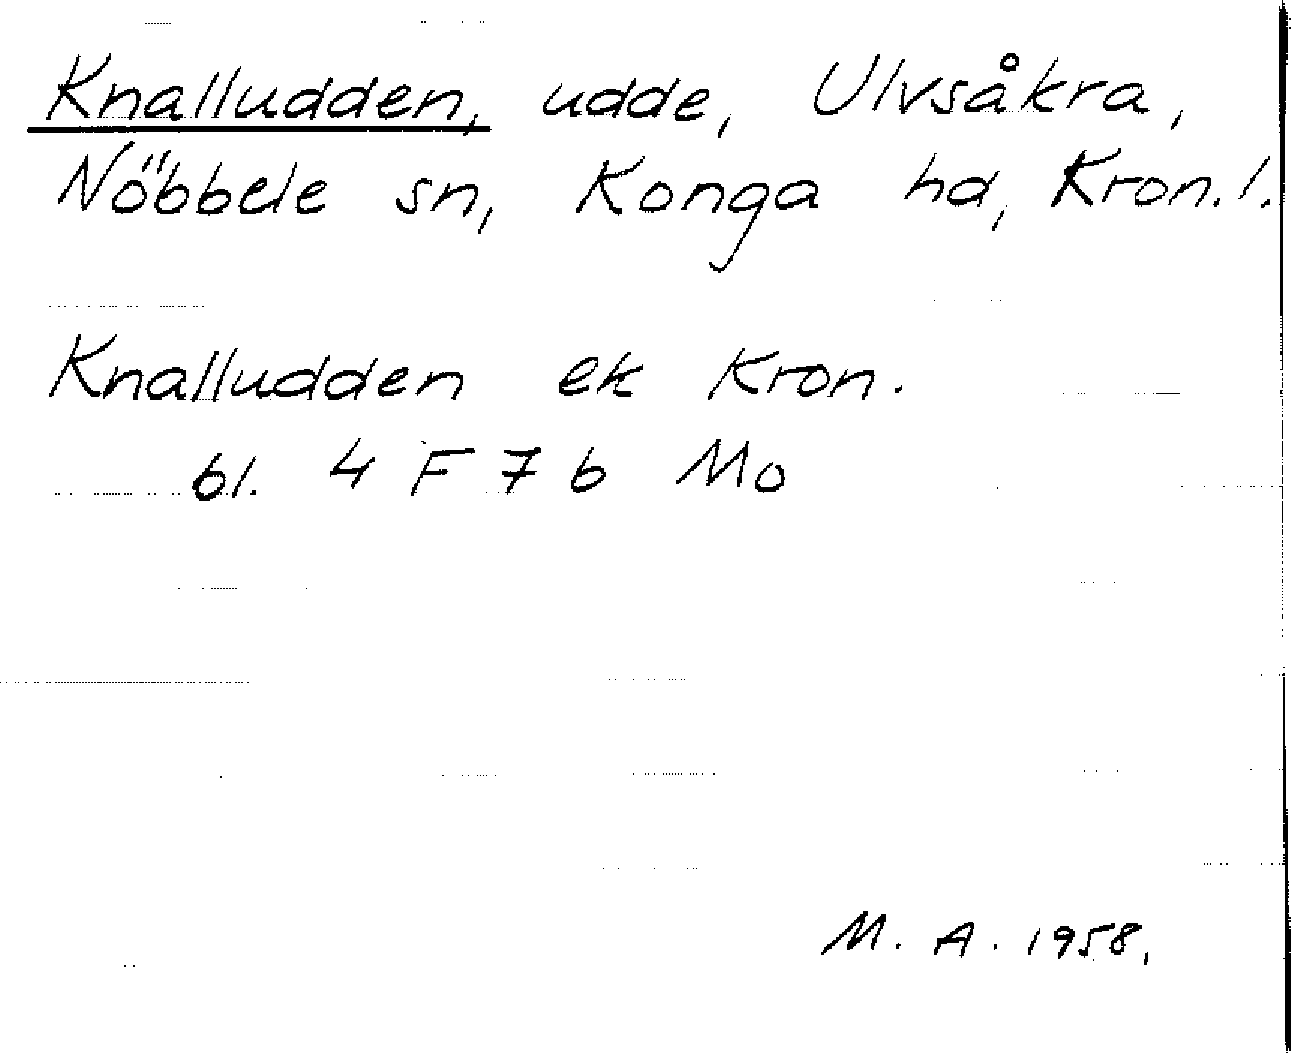 Knalludden, udde, Ulvsåkra,
Nöbbele sn, Konga hd, Kron. l.
Knalludden ek Kron.
bl. 4 F 7 b Mo
M. A. 1958.